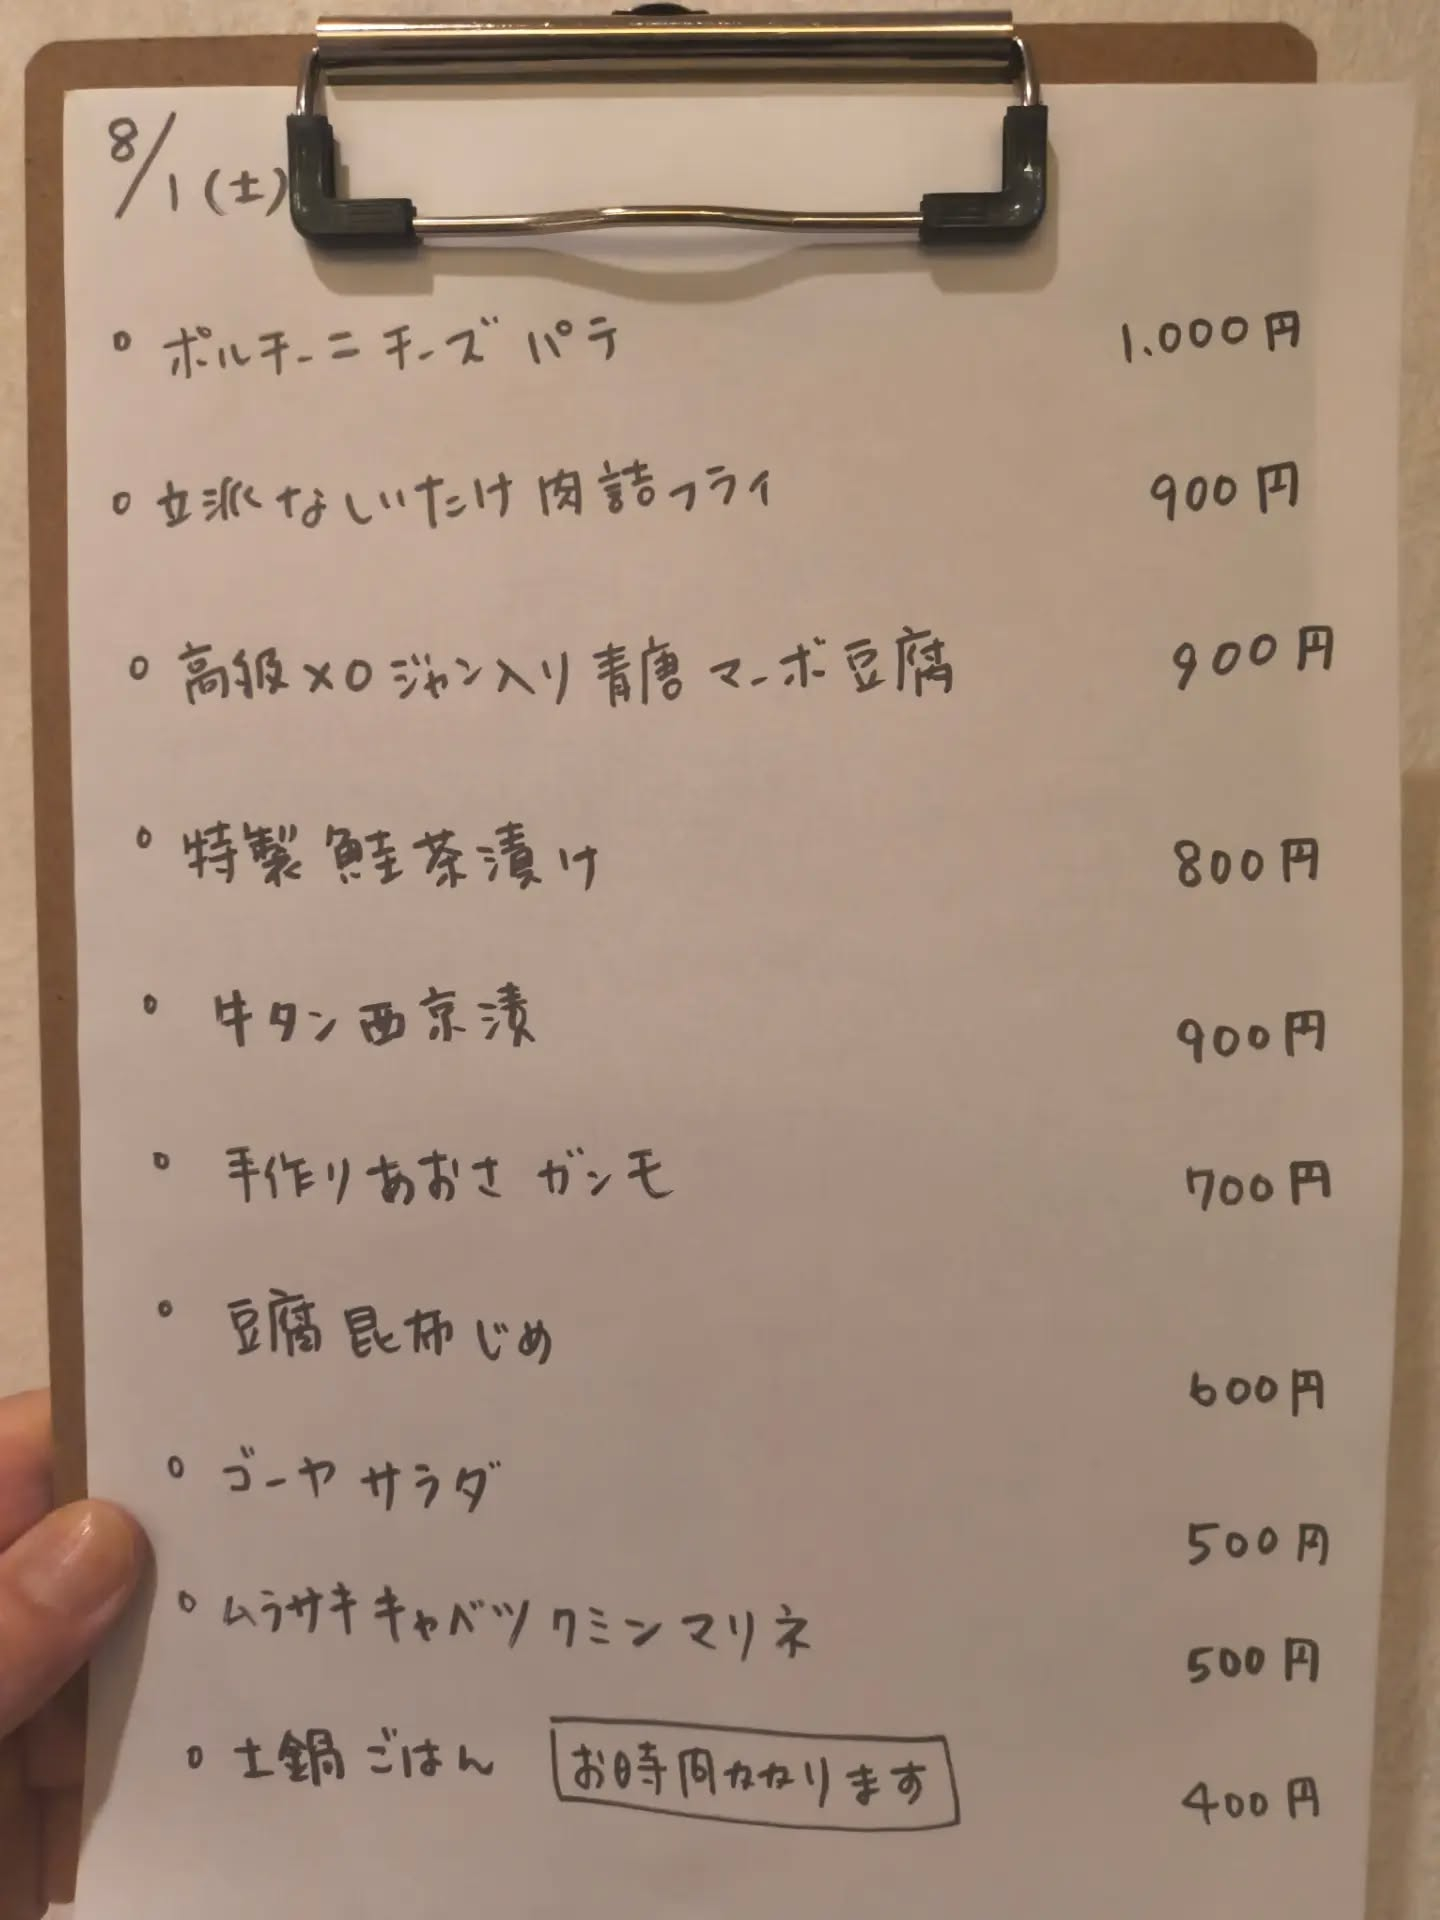 8/1(土)
ポルチーニチーズパテ 1.000円
立派なしいたけ肉詰フライ 900円
高級XOジャン入り青唐マーボ豆腐 900円
特製鮭茶漬け 800円
牛タン西京漬 900円
手作りあおさガンモ 700円
豆腐昆布じめ 600円
ゴーヤサラダ 500円
ムラサキキャベツクミンマリネ 500円
土鍋ごはん お時間かかります 400円